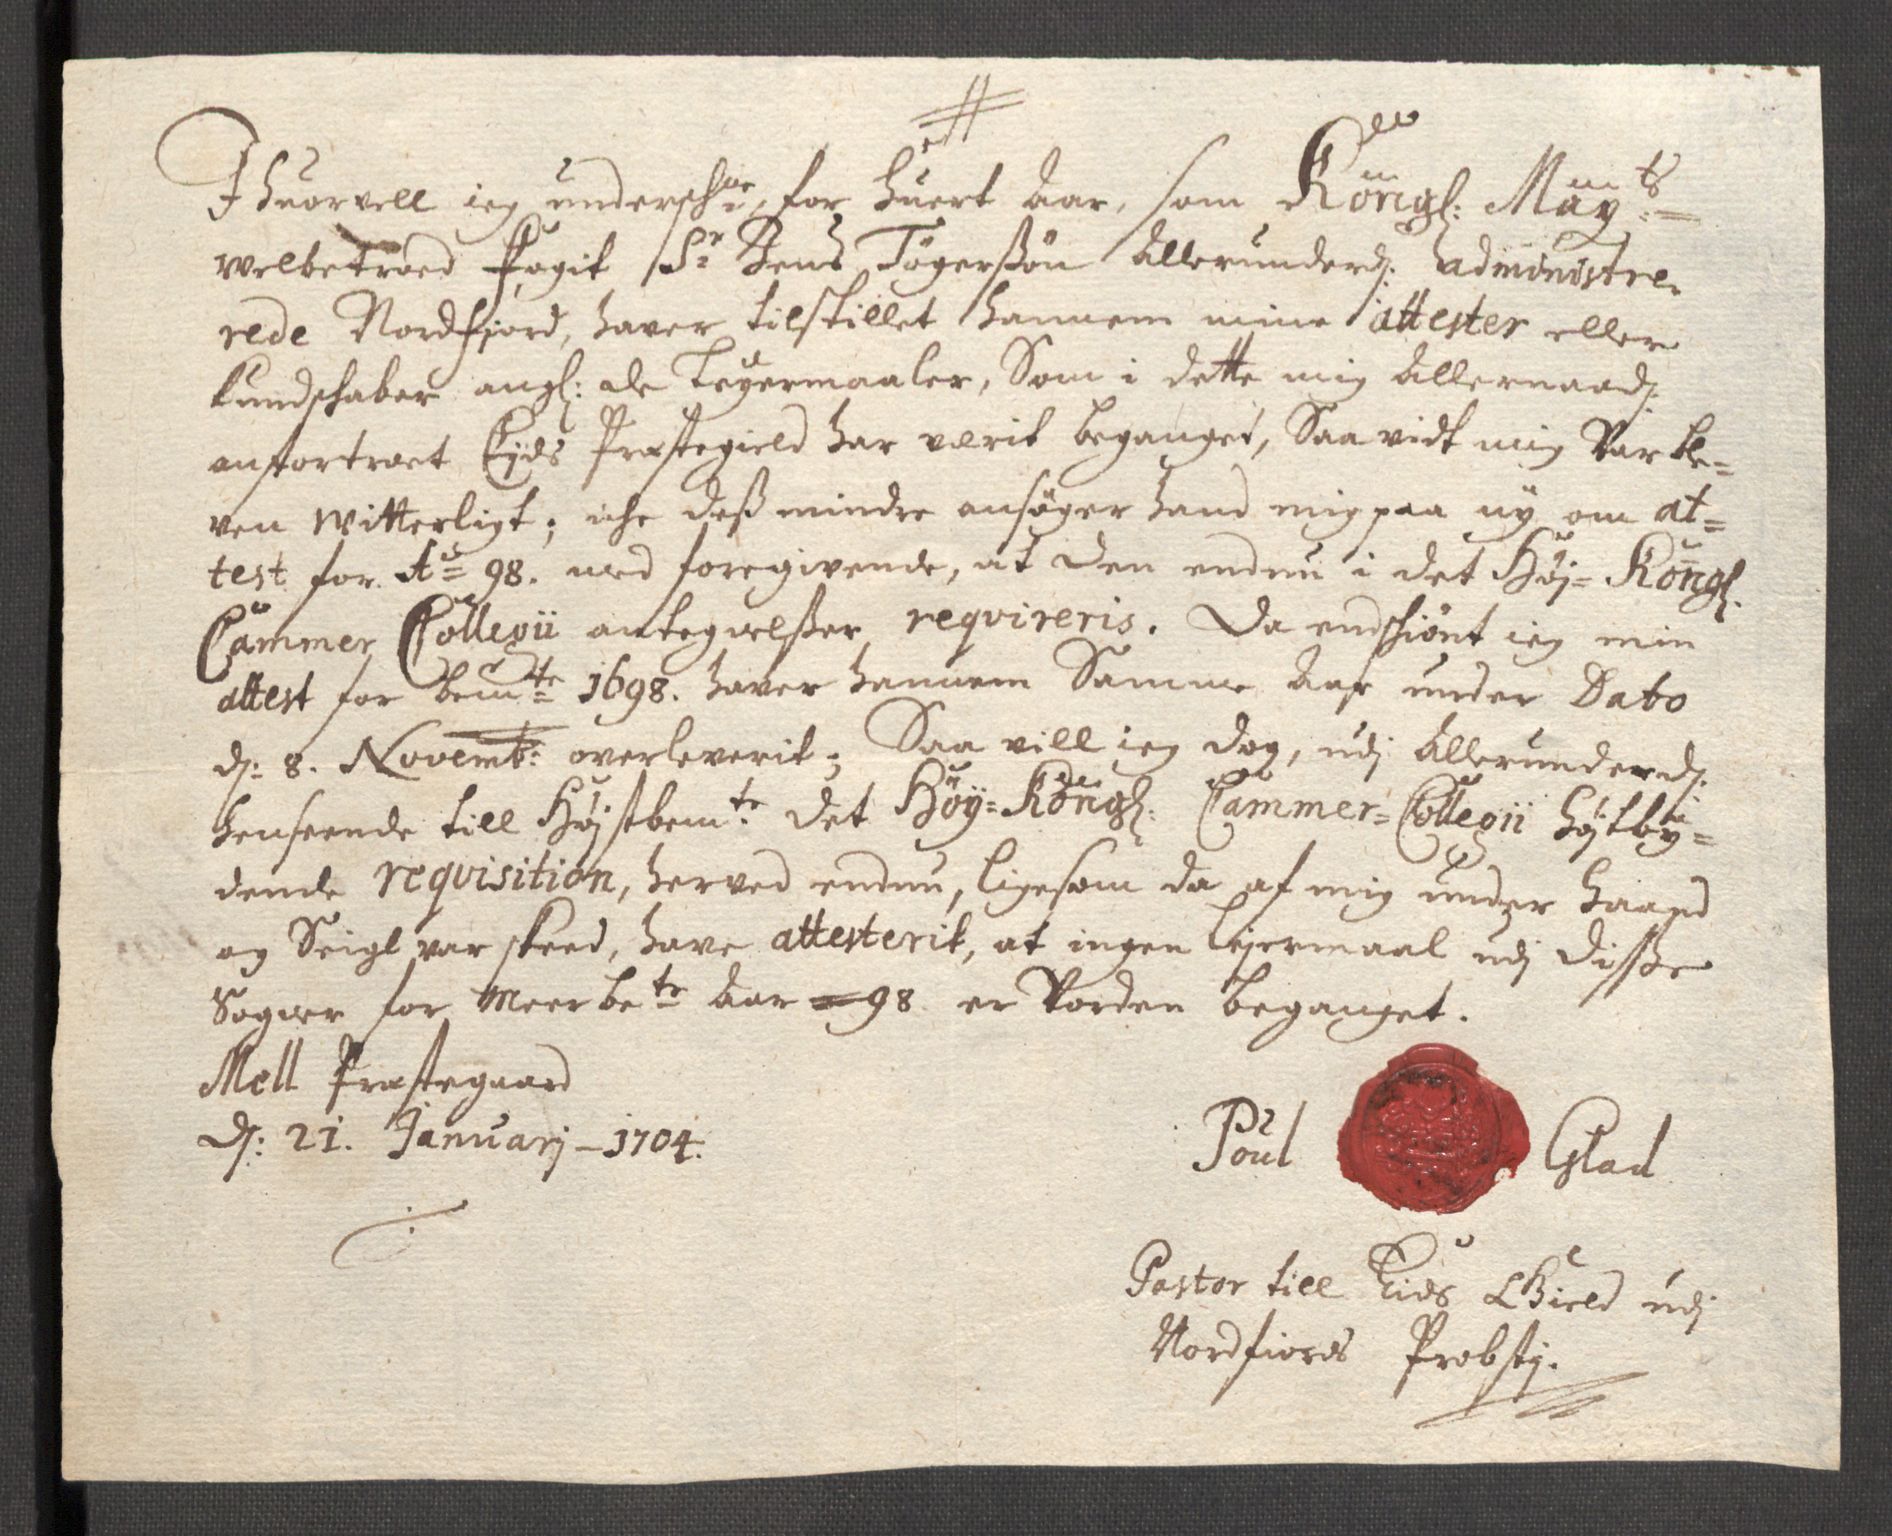 Ihuorvell ieg underschne, for huert Aar, som Kongl: Mayts:
welbetroed Fogit Sr Jens Tøgerssøn Allerunderd: Administre-
rede Nordfjord, haver tilstillet hannem mine attester eller
kundschaber angl: de Leyermaaler, Som i dette mig Allernaad:
anfortroet Eyds Præstegield har værit beganget, Saa vidt mig var ble=
ven witterligt; iche dess mindre ansøger hand mig paa ny om at=
test for Ao 98. med foregivende, at den endnu i det Høj= Kongl.
Cammer Collegii antegnelsser requireris. Da endschiønt ieg min
attest for bemte 1698. haver hannem Samme Aar under Dato
d: 8. Novemb: overleverit; Saa vill ieg dog, udj Allerunderd:
henseende till Højstbemte det Høy=Kongl: Cammer=Collegii højtby=
dende requisition, herved endnu, ligesom da af mig under haand
og Seigl var skeed, have attesterit, at ingen Lejermaal udj disse
Sogner for meerbete Aar 98 er vorden beganget.
Mell Præstegaard
d: 21. Januarj 1704.
Poul Glad
Pastor till Eids Gield udj
Nordfiords Probstj.